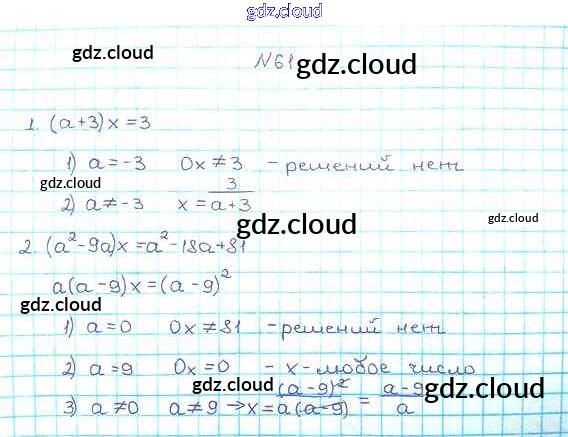 gdz.cloud
gdz.cloud
№61 gdz.cloud
1. (a+3)x=3
1) a=-3 0x≠3 -решений нет
gdz.cloud
2) a≠-3 x=3/(a+3)
gdz.cloud gdz.cloud
2. (a²-9a)x=a²-18a+81
a(a-9)x=(a-9)²
gdz.cloud gdz.cloud
1) a=0 0x≠81 -решений нет
2) a=9 0x=0 - x-любое число
3) a≠0 a≠9 → x=(a-9)²/a(a-9) = a-9/a
gdz.cloud gdz.cloud gdz.cloud